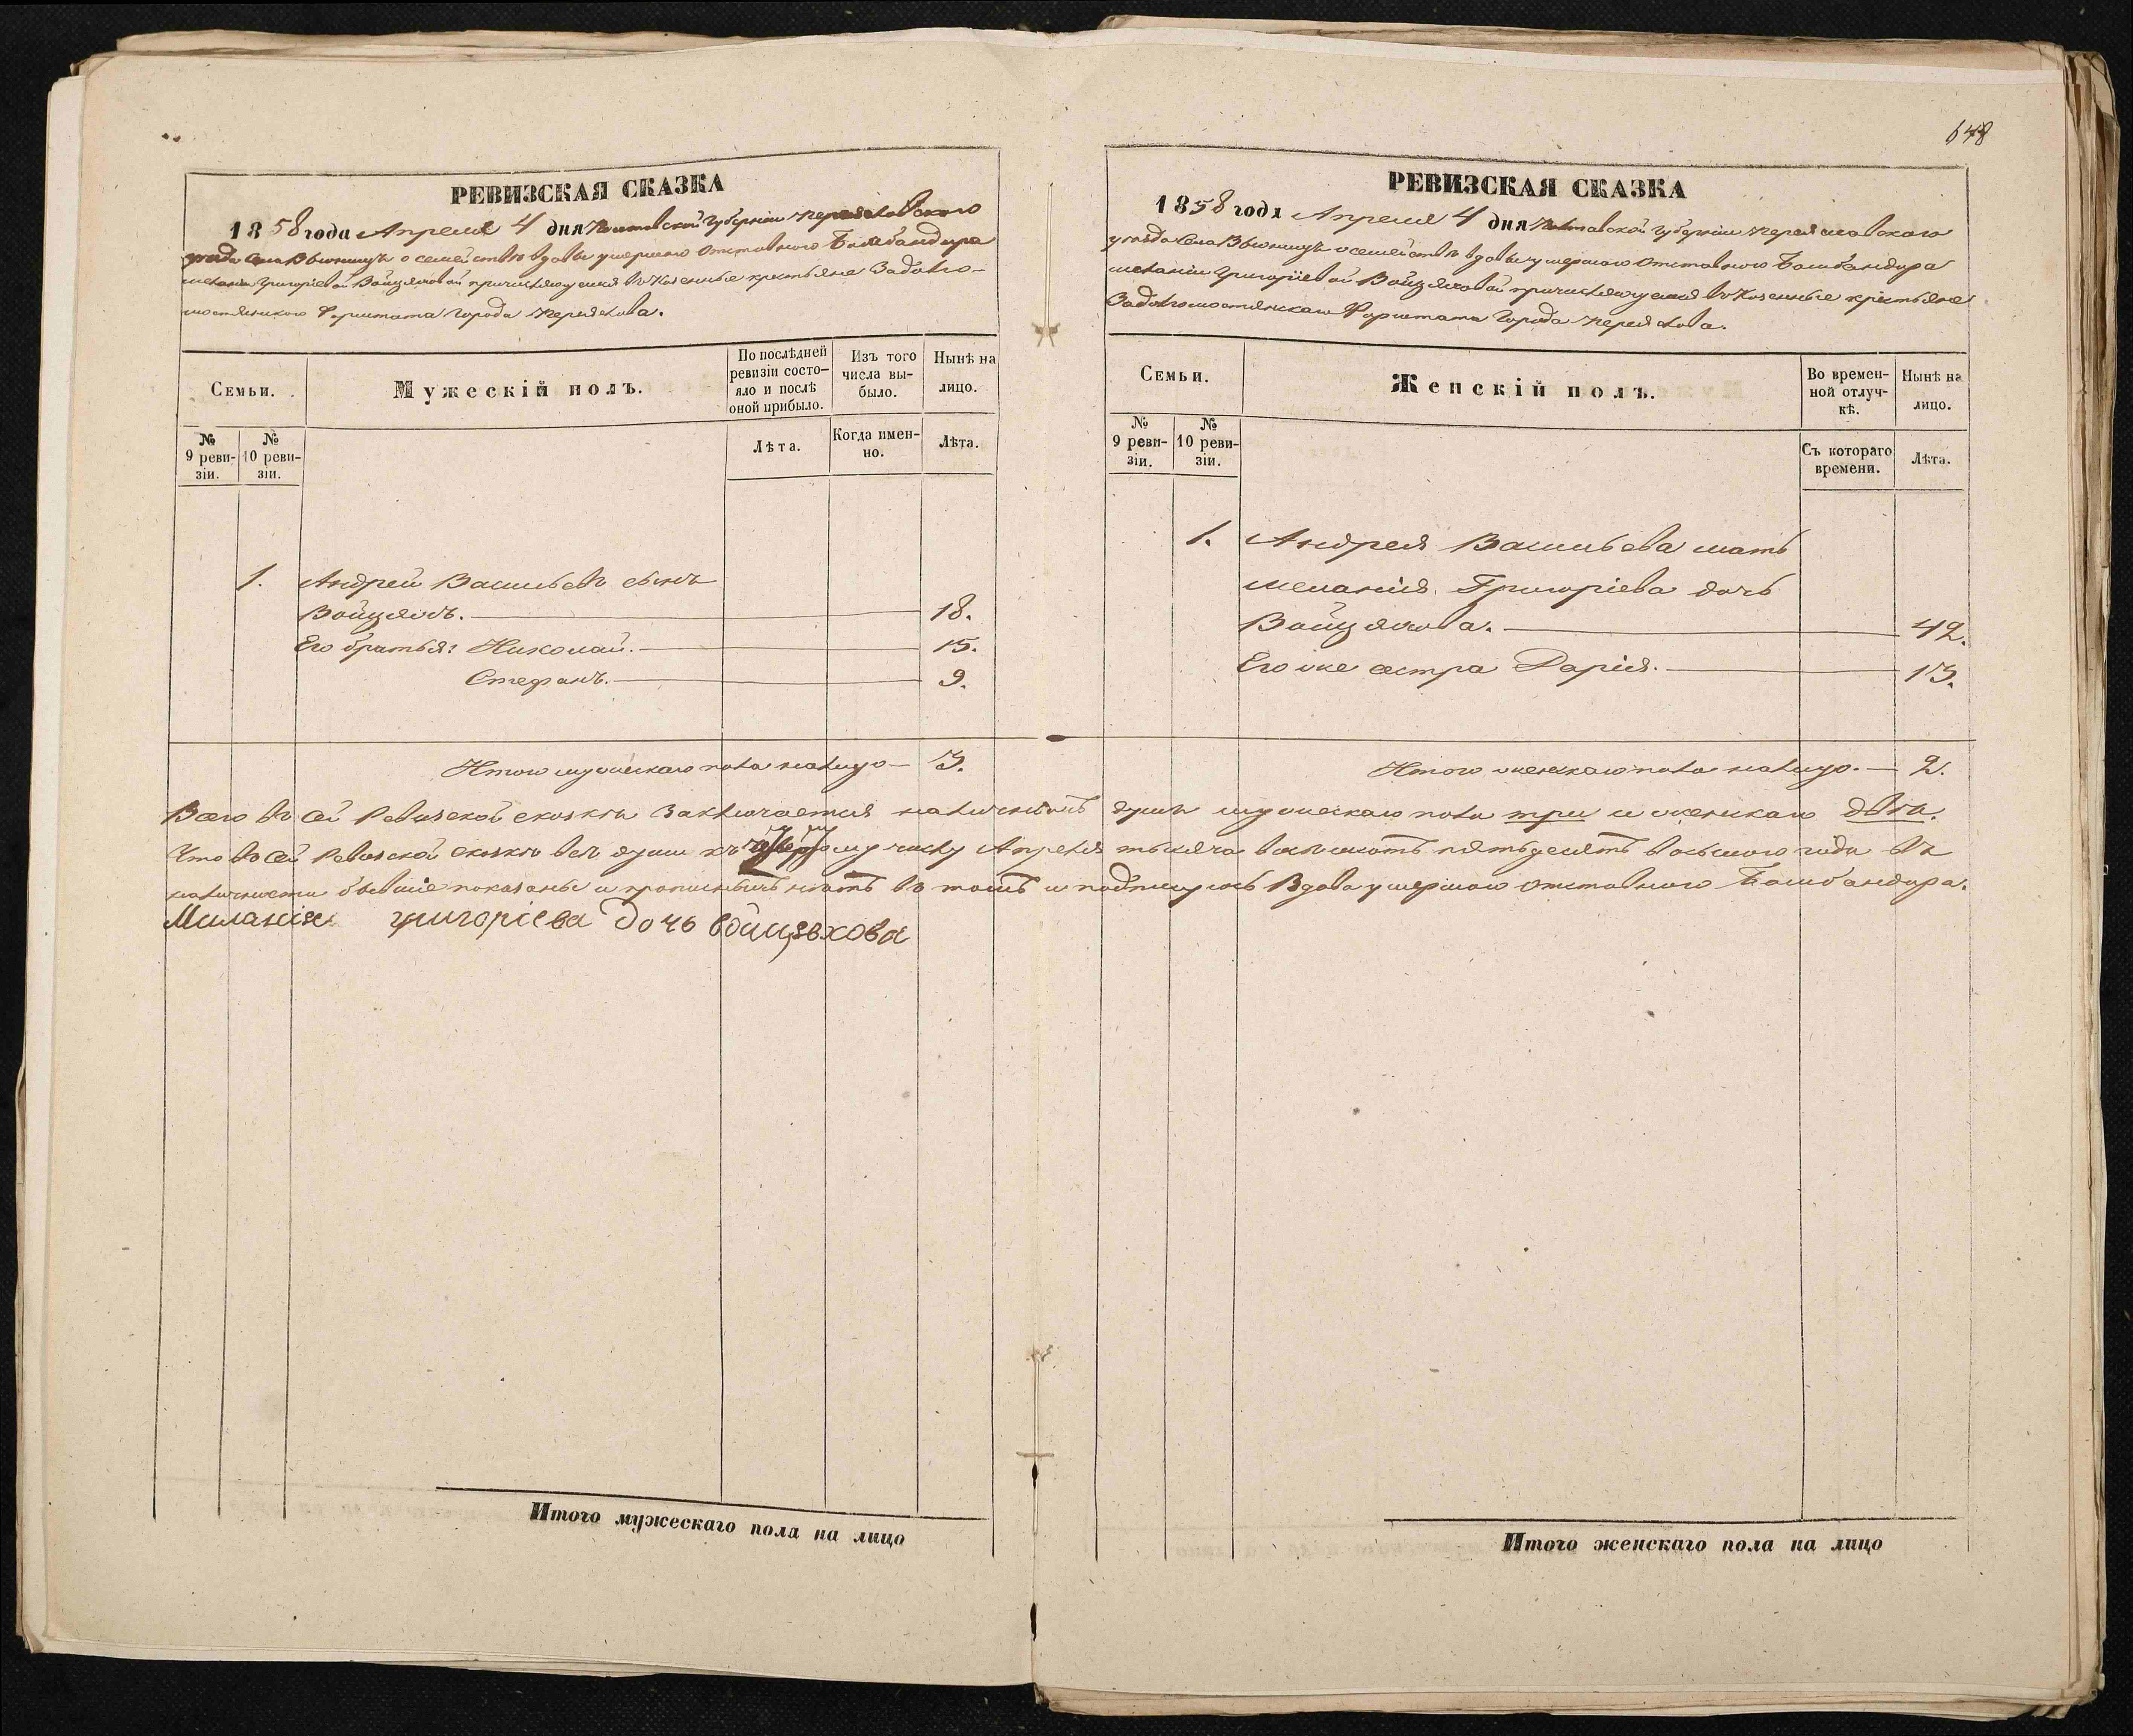 РЕВИЗСКАЯ СКАЗКА
1858 года Апреля 4 дня Полтавской Губерніи Переяславскаго
уезда села Вьюницъ о семействѣ вдовы умершаго отставного Бомбандира
Меланіи Григоріевой Войцяховой причисляющемся въ казенные крестьяне Задолго-
мостянского Форштата города Переяслова.
Семьи.
Мужескій полъ.
По послѣдней ревизіи состояло и послѣ оной прибыло.
Изъ того числа выбыло.
Нынѣ на лицо.
№ 9 ревизіи.
№ 10 ревизіи.
Лѣта.
Когда именно.
Лѣта.
1. Андрей Васильевъ сынъ
Войцяхъ. 18.
Его братья: Николай. 15.
Стефанъ. 9.
Итого мужескаго пола налицо 3.
648
РЕВИЗСКАЯ СКАЗКА
1858 года Апреля 4 дня Полтавской Губерніи Переяславскаго
уезда села Вьюницъ о семействѣ вдовы умершаго отставного Бомбандира
Меланіи Григоріевой Войцяховой причисляющемся въ казенные крестьяне
Задолгомостянскаго Форштата города Переяслова.
Семьи.
Женскій полъ.
Во временной отлучкѣ.
Нынѣ на лицо.
№ 9 ревизіи.
№ 10 ревизіи.
Съ котораго времени.
Лѣта.
1. Андрея Васильева мать
Меланія Григоріева дочь
Войцяхова. 42.
Его же сестра Дарія. 13.
Итого женскаго пола налицо. 2.
Всего въ сей Ревизской сказкѣ заключается наличныхъ душъ мужескаго пола три и женскаго двѣ.
Что въ сей Ревизской сказкѣ всѣ души къ числу Апреля тысяча восьмсотъ пятьдесятъ восьмого года въ
наличности бывшіе показаны и прописныхъ нѣтъ въ томъ и подпишуюсь Вдова умершаго отставного Бомбандира.
Миланія григоріева дочь войцѣхова
Итого мужескаго пола на лицо
Итого женскаго пола на лицо